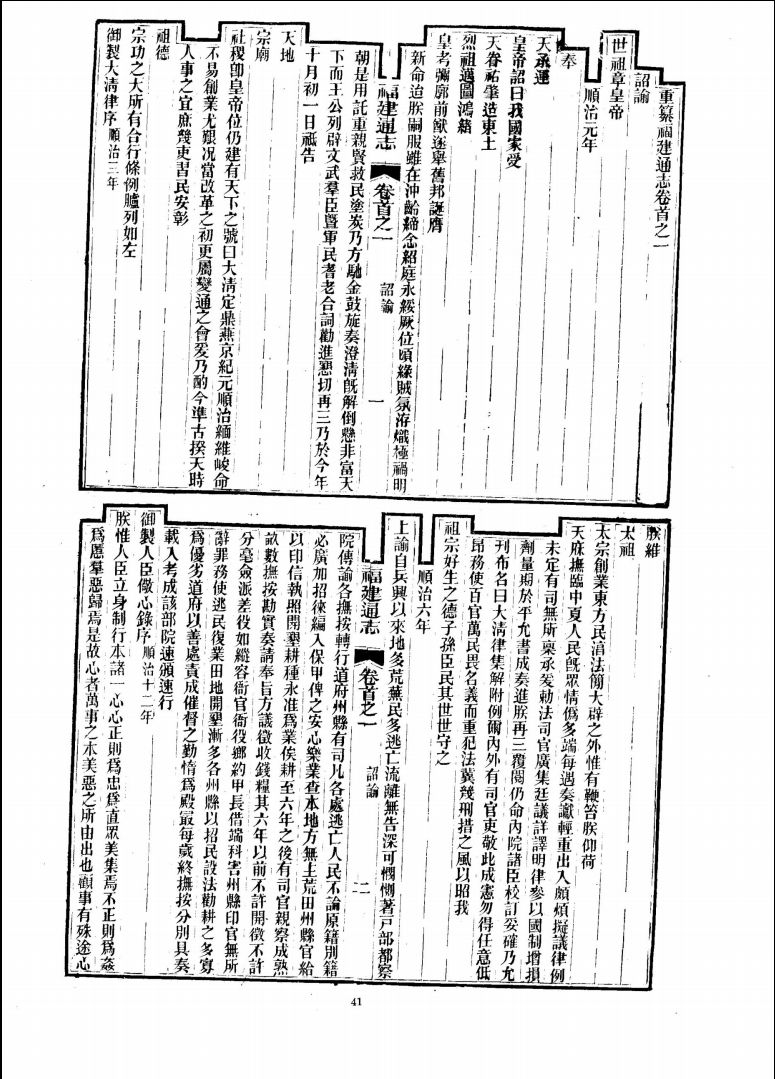 重纂福建通志卷首之一
詔諭
世祖章皇帝
順治元年
奉
天承運
皇帝詔曰我國家受
天眷祐肇造東土
烈祖邁圖鴻緒
皇考彌廓前猷遂舉舊邦誕膺
新命迨朕嗣服雖在沖齡締念紹庭永綏厥位頃緣賊氛洊熾極禍明
福建通志
卷首之一
詔諭
一
朝是用託重親賢救民塗炭乃方馳金鼓旋奏澄清旣解倒懸非富天
下而王公列辟文武羣臣暨軍民耆老合詞勸進懇切再三乃於今年
十月初一日祗告
天地
宗廟
社稷卽皇帝位仍建有天下之號曰大淸定鼎燕京紀元順治緬維峻命
不易創業尤艱况當改革之初更屬變通之會爰乃酌今準古揆天時
人事之宜庶幾吏習民安彰
祖德
宗功之大所有合行條例臚列如左
御製大淸律序順治三年
朕維
太祖
太宗創業東方民淳法簡大辟之外惟有鞭笞朕仰荷
天庥撫臨中夏人民旣眾情僞多端每遇奏讞輕重出入頗煩擬議律例
未定有司無所稟承爰勅法司官廣集廷議詳譯明律參以國制增損
劑量期於平允書成奏進朕再三覆閱仍命內院諸臣校訂妥確乃允
刊布名曰大淸律集解附例爾內外有司官吏敬此成憲勿得任意低
昂務使百官萬民畏名義而重犯法冀幾刑措之風以昭我
祖宗好生之德子孫臣民其世世守之
順治六年
上諭自兵興以來地多荒蕪民多逃亡流離無告深可憫惻著戸部都察
福建通志
卷首之一
詔諭
二
院傳諭各撫按轉行道府州縣有司凡各處逃亡人民不論原籍別籍
必廣加招徠編入保甲俾之安心樂業查本地方無主荒田州縣官給
以印信執照開墾耕種永准爲業俟耕至六年之後有司官親察成熟
畝數撫按勘實奏請奉旨方議徵收錢糧其六年以前不許開徵不許
分毫僉派差役如縱容衙官衙役鄉約甲長借端科害州縣印官無所
辭罪務使逃民復業田地開墾漸多各州縣以招民設法勸耕之多寡
爲優劣道府以善處責成催督之勤惰爲殿最每歲終撫按分別具奏
載入考成該部院速頒速行
御製人臣儆心錄序順治十二年
朕惟人臣立身制行本諸一心心正則爲忠爲直眾美集焉不正則爲姦
爲慝羣惡歸焉是故心者萬事之本美惡之所由出也顧事有殊途心
41